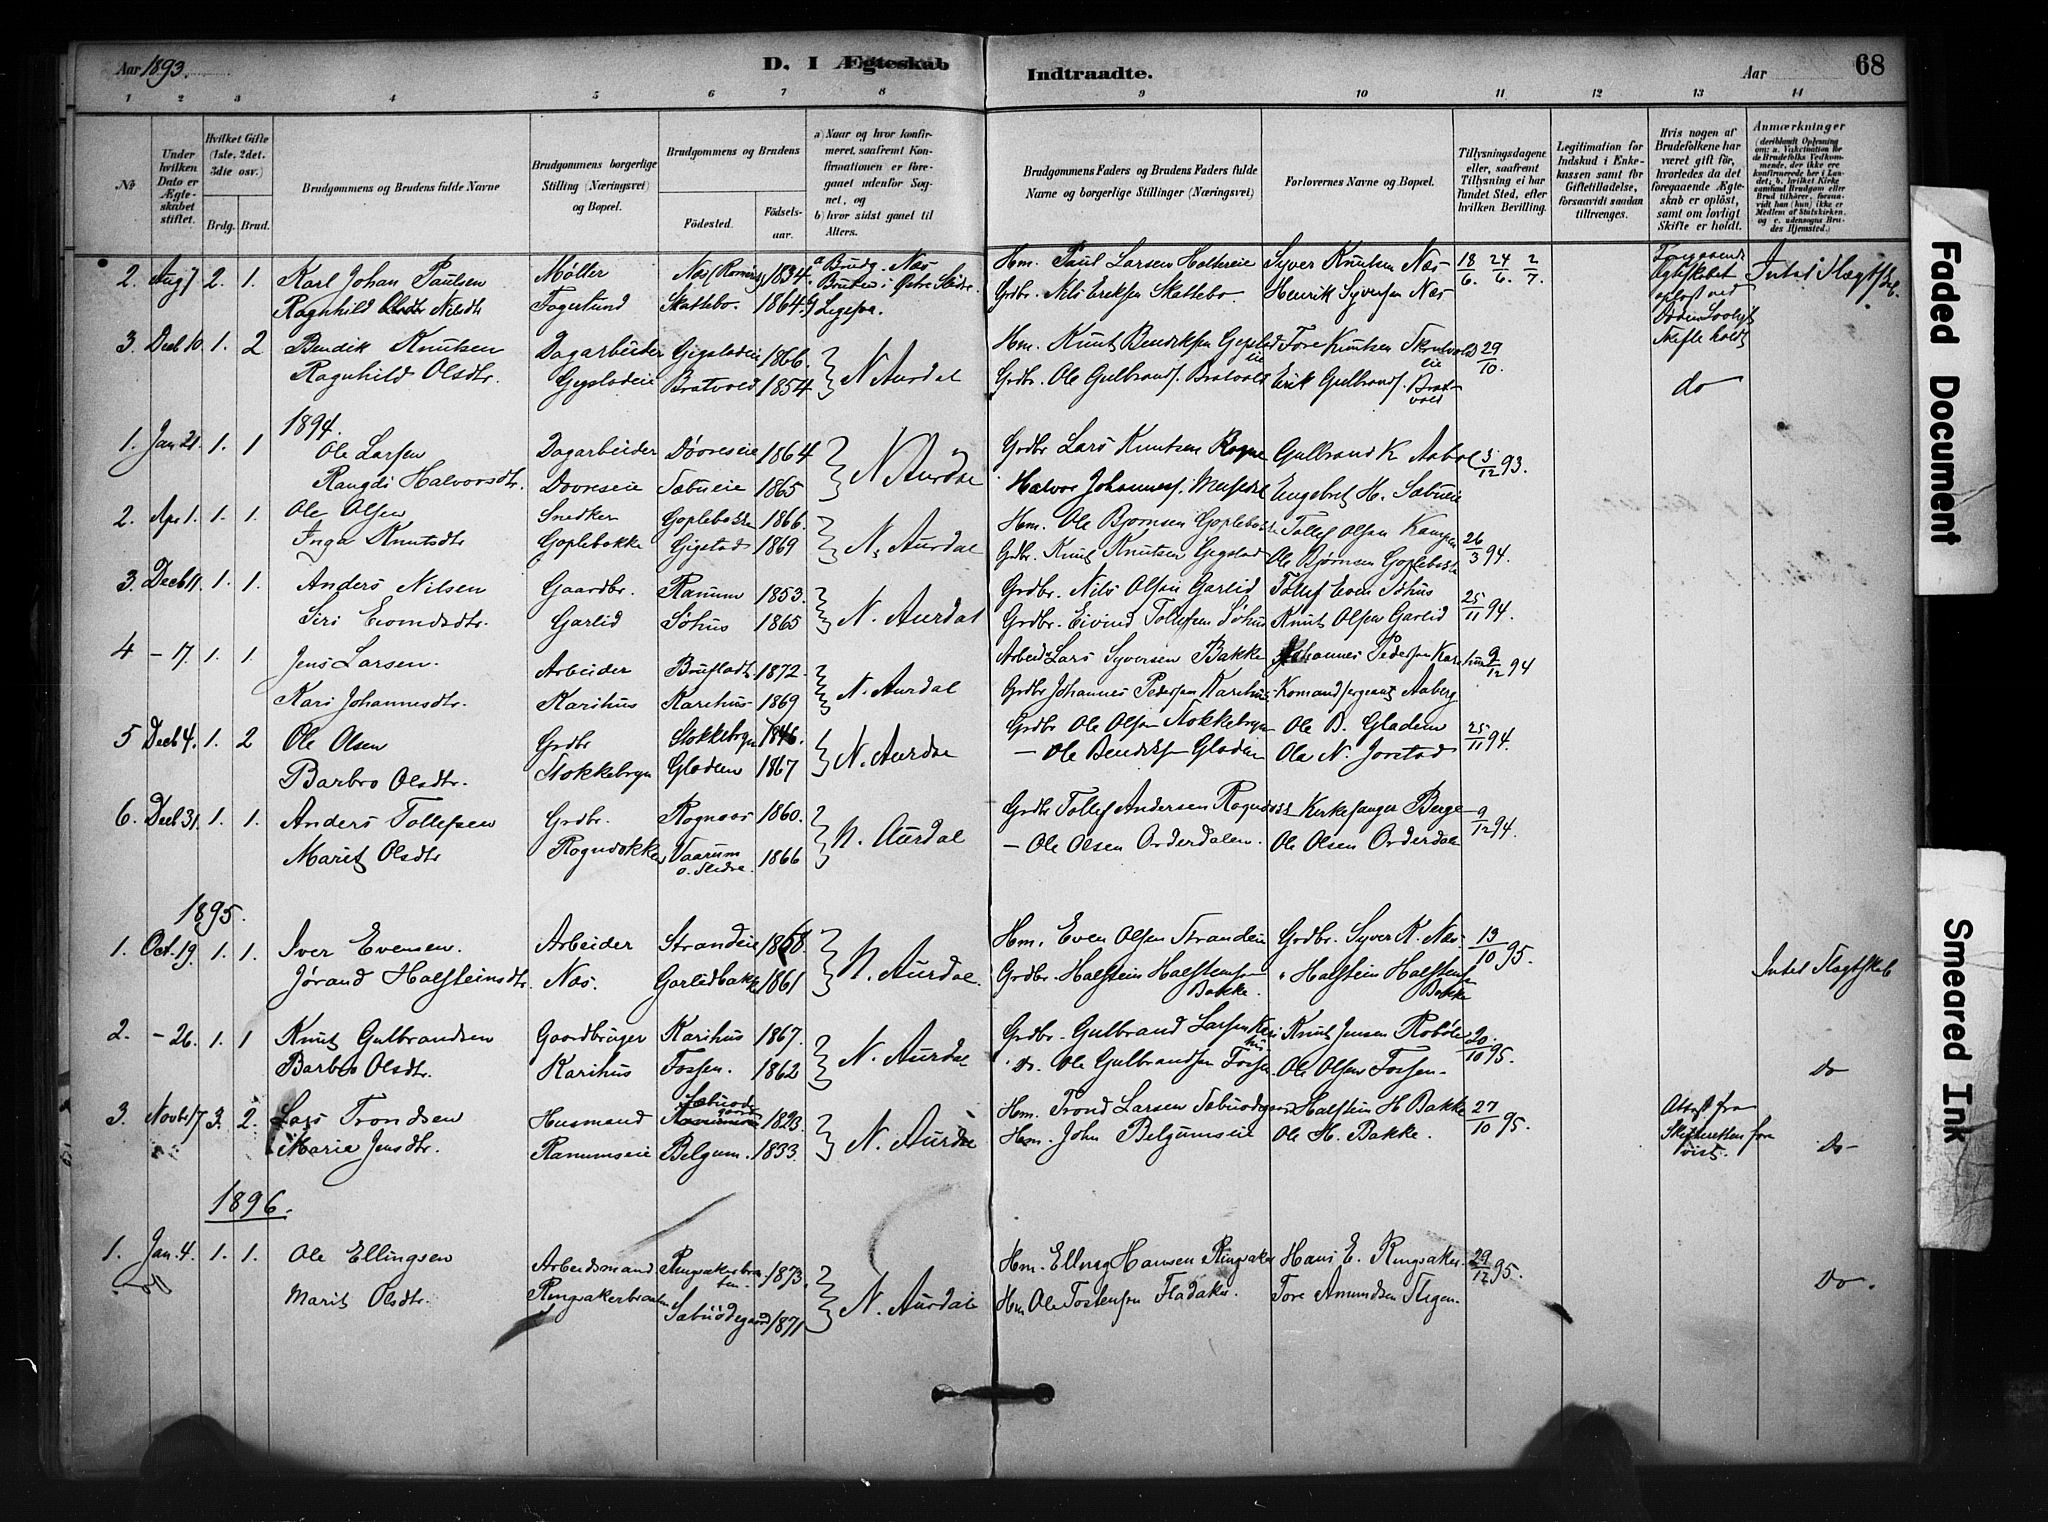 Aar 1893.
D. I Ægteskab
Indtraadte.
Aar 68
1 2 3 4 5 6 7 8 9 10 11 12 13 14
No
Under hvilken Dato er Ægteskabet stiftet.
Hvilket Gifte (1ste, 2det, 3die osv.)
Brdg. Brud.
Brudgommens og Brudens fulde Navne
Brudgommens borgerlige Stilling (Næringsvei) og Bopæl.
Brudgommens og Brudens
Födested. Födsels-aar.
a) Naar og hvor konfirmeret, saafremt Konfirmationen er foregaaet udenfor Sognet, og
b) hvor sidst gaaet til Alters.
Brudgommens Faders og Brudens Faders fulde Navne og borgerlige Stillinger (Næringsvei)
Forlovernes Navne og Bopæl.
Tillysningsdagene eller, saafremt Tillysning ei har fundet Sted, efter hvilken Bevilling.
Legitimation for Indskud i Enkekassen samt for Giftetilladelse, forsaavidt saadan tiltrænges.
Hvis nogen af Brudefolkene har været gift för, hvorledes da det foregaaende Ægteskab er oplöst, samt om lovligt Skifte er holdt.
Anmærkninger
2. Aug 7 2. 1. Karl Johan Paulsen Møller Næs 1834. a Brudg. Næs Hm. Paul Larsen Holtereie Syver Knutsen Næs 18/6 24/6 2/7 Foregaaende Egteskabet
Ragnhild Nilsdtr Fagerlund Skattebo 1864 Bruden i Østre Slidre Grdbr. Nils Eriksen Skattebo Henrik Syversen Næs Skifte holdt
3. Decb 10. 1. 2 Bendik Knutsen Dagarbeider Gigstadeie 1866. N Aurdal Hm. Knut Bendiksen Tore Knutsen 29/10
Ragnhild Olsdtr. Gigstadeie Bratvold 1854 Grdbr. Ole Gulbrands. Bratvold Erik Gulbrands. Bratvold do
1894.
1. Jan 21. 1. 1 Ole Larsen Dagarbeider Dövreseie 1864 N Aurdal Grdbr Lars Knutsen Rogne Gulbrand K 3/12 93.
Rangdi Halvorsdtr. Dovreseie Sæbueie 1865 Halvor Johanness. Engebret H. Sæbueie
2. Apr 1. 1. 1. Ole Olsen Snedker Goplebakke 1866. N. Aurdal Hm. Ole Bjørnsen Tollef Olsen 26/3 94.
Inga Knutsdtr Goplebakke Gigstad 1869 Grdbr. Knut Knutsen Gigstad Ole Bjørnsen
3. Decb 11. 1. 1. Anders Nilsen Gaardbr. Ranum 1853. N. Aurdal Grdbr. Nils Olsen Garlid Tollef Even Söhus 25/11 94.
Siri Garlid Söhus 1865 Grdbr. Eivind Tollefsen Söhus Knut Olsen Garlid
4 - 17. 1. 1. Jens Larsen. Arbeider 1872. N. Aurdal Arbeid. Lars Syversen Bakke Johannes Pedersen Karihus 9/12 94
Kari Johannesdtr. Karihus Karihus 1869 Grdbr Johannes Pedersen Karihus Komandersergeant Aaberg
5 Decb 4. 1. 2 Ole Olsen Grdbr Stokkebryn 1846. N. Aurdal Grdbr Ole Olsen Stokkebryn Ole B. Gladem 25/11 94.
Barbro Olsdtr. Stokkebryn Gladem 1867 - Ole Bendiksen Ole N. Jorstad
6. Decb 31. 1. 1. Anders Tollefsen Grdbr. Rognaas 1860. N. Aurdal Grdbr Tollef Andersen Rognaas Kirkesanger Berge 9/12 94.
Marit Olsdtr Vaarum o. Slidre 1866 - Ole Olsen Orderdalen. Ole Olsen Orderdalen
1895.
1. Oct. 19. 1. 1. Iver Evensen. Arbeider Strandeie N. Aurdal. Hm. Even Olsen Strandeie Grdbr. Syver K. Næs. 13/10 95.
Jørand Halsteinsdtr. Næs. Garlidbakke 1861 Grdbr. Halstein Halstensen Bakke. Halstein Halstensen Bakke Intet Slægtskab
2. - 26. 1. 1 Knut Gulbrandsen Gaardbruger Karihus 1867. N. Aurdal Grdbr. Gulbrand Larsen Karihus Knut Jensen Robøle 20/10 95.
Barbro Olsdtr. Karihus Fossen. 1862 Do. Ole Gulbrandsen Fossen. Ole Olsen Fossen. Do
3. Novbr 17 3. 2. Lars Trondsen Husmand Sæbuødegaard 1823. N. Aurdal Hm. Trond Larsen Sæbuødegaard Halstein H Bakke 27/10 95. Attest fra Skifteretten forevist.
Marie Jensdtr. Ranumseie Belgum. 1833. Hm. John Belgumseie Ole H. Bakke. Do
1896.
1. Jan. 4. 1. 1. Ole Ellingsen Arbeidsmand Ringsakerbraaten 1873. N. Aurdal Hm. Elling Hansen Ringsaker Hans E. Ringsaker. 29/12 95.
Marit Olsdtr. Ringsakerbraaten Sæbuödegaard 1871 Hm Ole Tostensen Tore Amundsen Do.
Faded Document
Smeared Ink